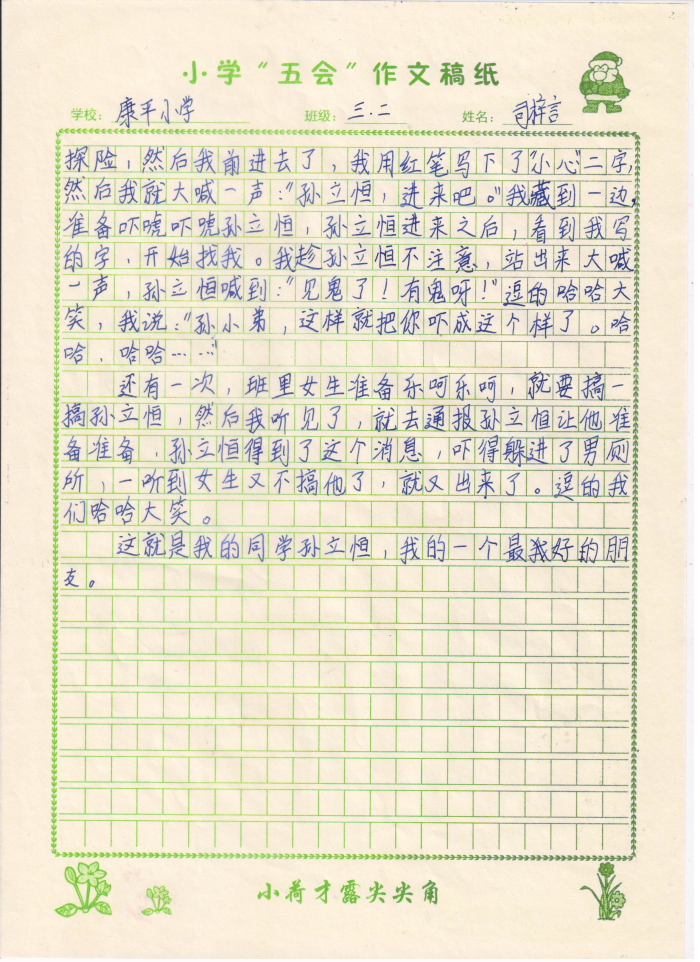 小学“五会”作文稿纸
学校：康平小学 班级：三.二 姓名：司梓言
探险，然后我前进去了，我用红笔写下了“小心”二字，
然后我就大喊一声：“孙立恒，进来吧。”我藏到一边，
准备吓唬吓唬孙立恒，孙立恒进来之后，看到我写
的字，开始找我。我趁孙立恒不注意，站出来大喊
一声，孙立恒喊到：“见鬼了！有鬼呀！”逗的哈哈大
笑，我说：“孙小弟，这样就把你吓成这个样了。哈
哈，哈哈……”
还有一次，班里女生准备乐呵乐呵，就要搞一
搞孙立恒，然后我听见了，就去通报孙立恒让他准
备准备，孙立恒得到了这个消息，吓得躲进了男厕
所，一听到女生又不搞他了，就又出来了。逗的我
们哈哈大笑。
这就是我的同学孙立恒，我的一个最好的朋
友。
小荷才露尖尖角